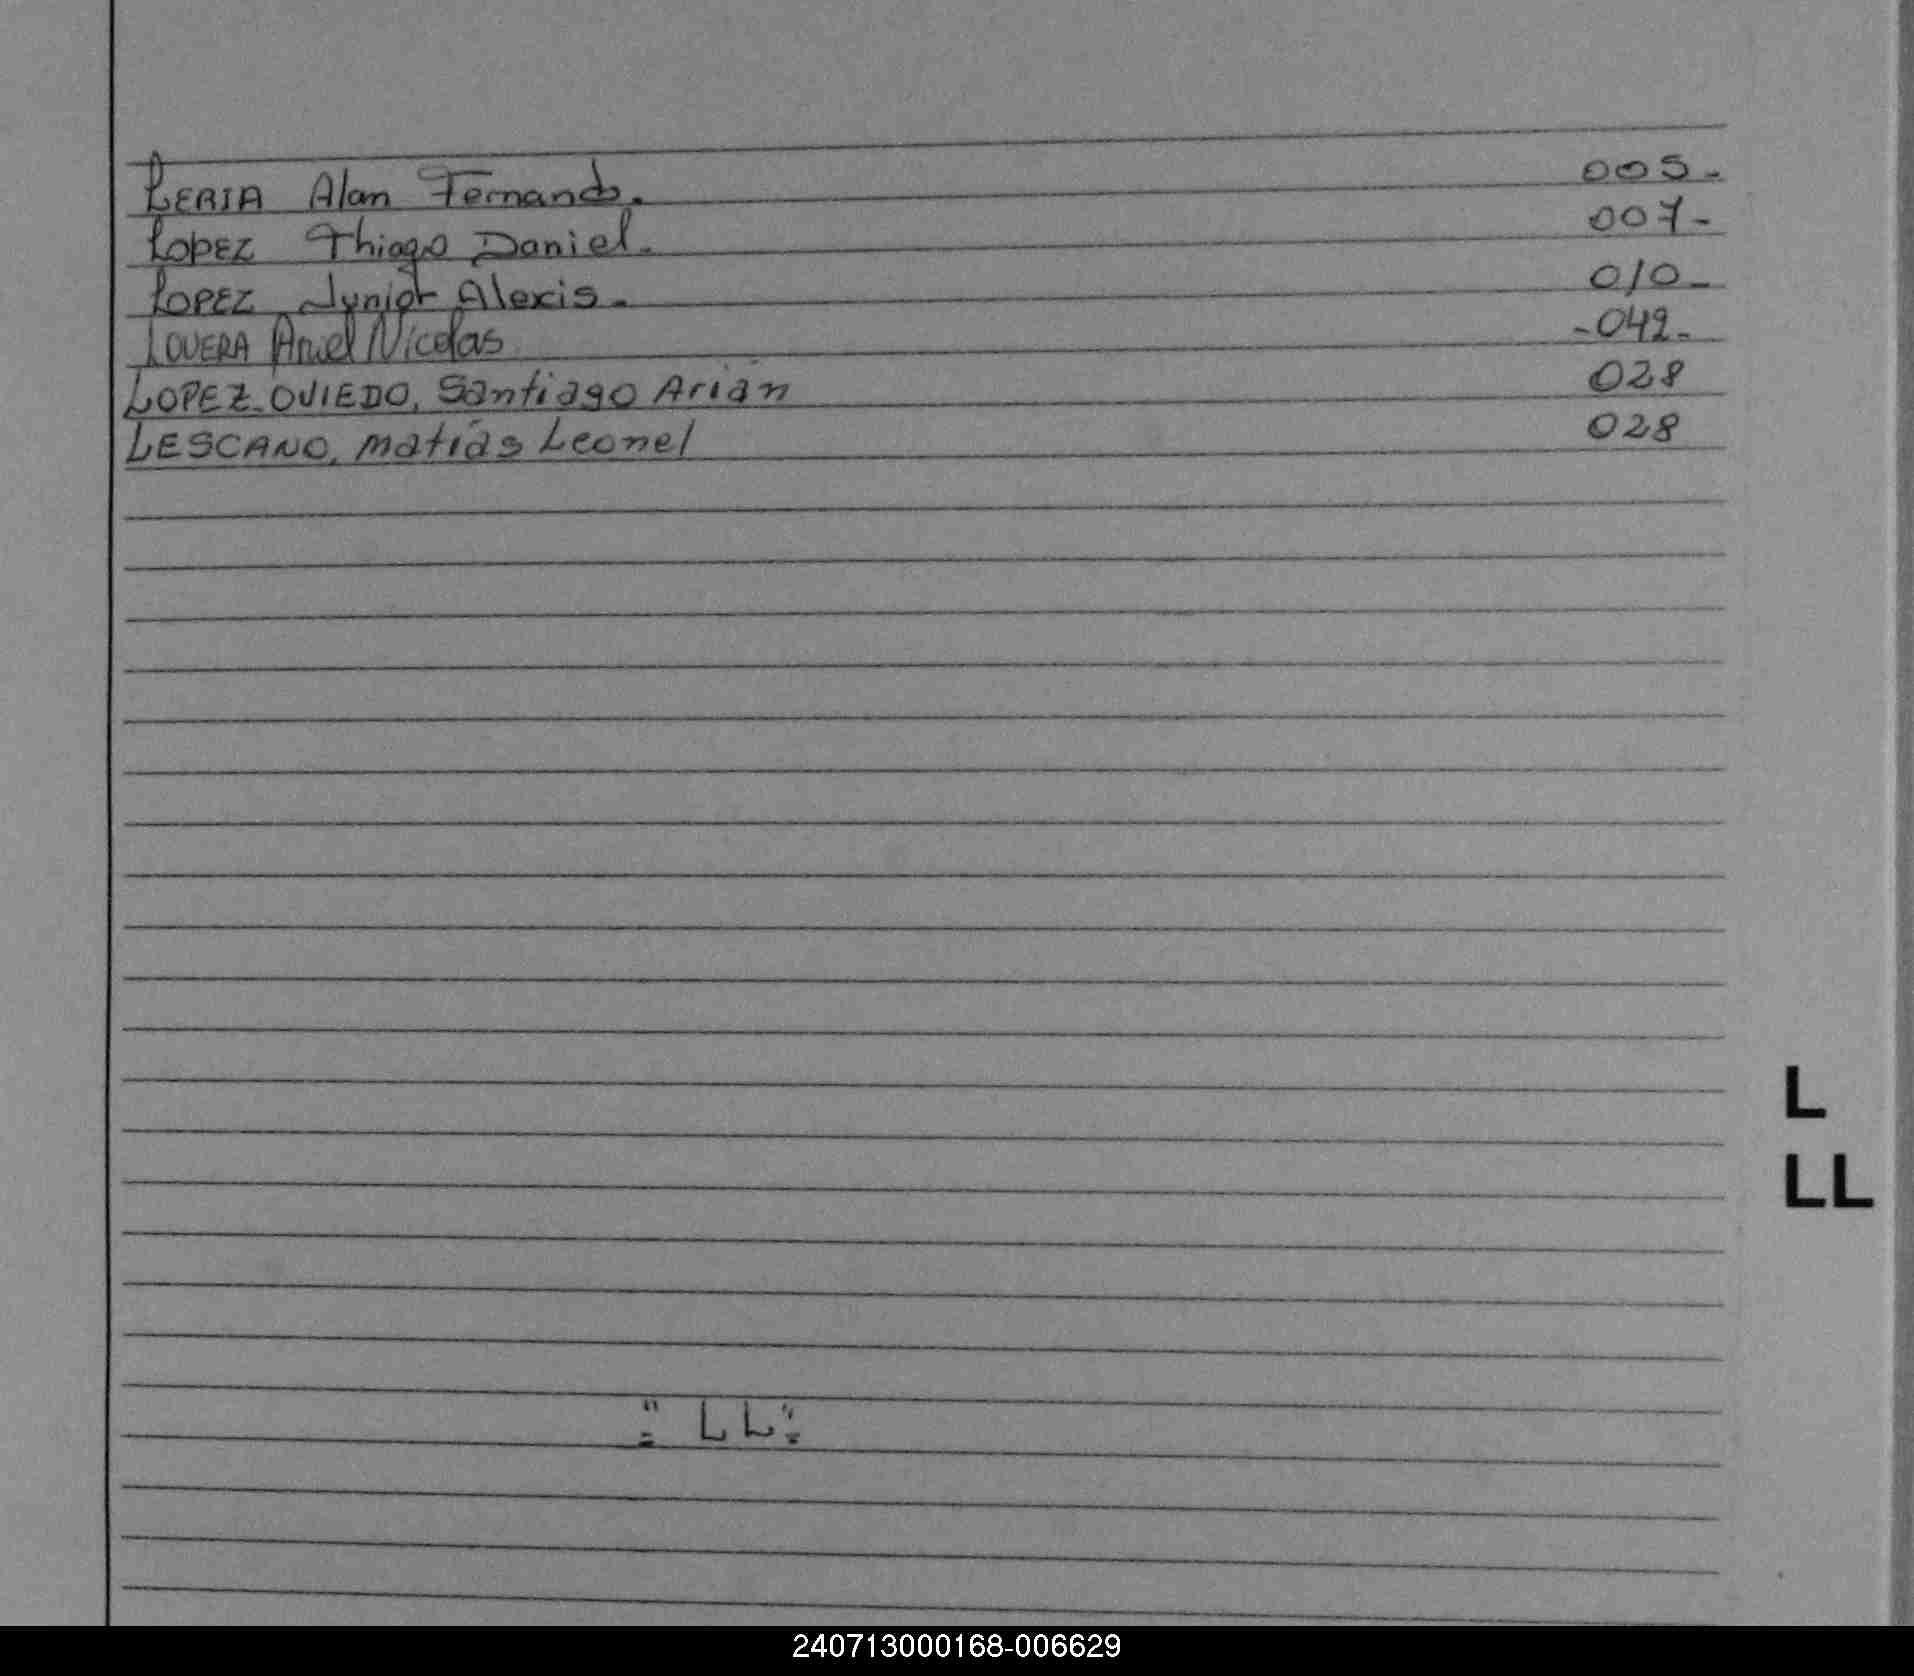 LERIA Alan Fernando. 005-
Lopez Thiago Daniel. 007-
LOPEZ Junior Alexis. 010-
LOVERA Ariel Nicolas -042-
LOPEZ OVIEDO, Santiago Arián 028
LESCANO, Matías Leonel 028
L
LL
="LL"=
240713000168-006629